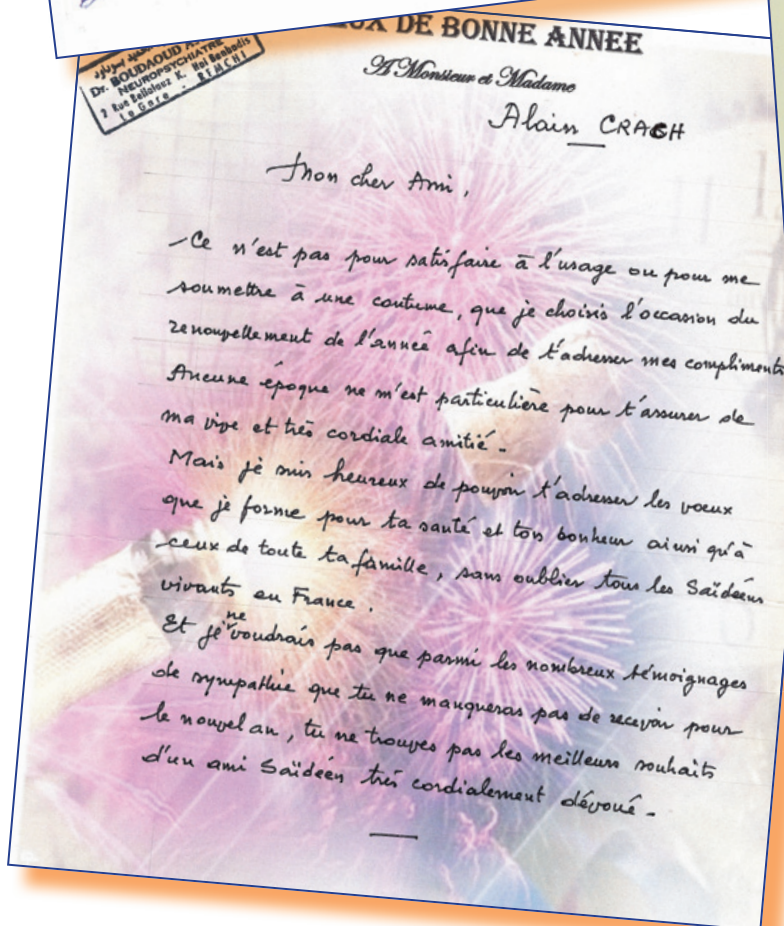 DE BONNE ANNEE
A Monsieur et Madame
Dr. BOUDAOUD
NEUROPSYCHIATRE
2 Rue Bellalouz K. Hai Benhadis
La Gare - REMCHI
Alain CRACH
Mon cher Ami,
Ce n'est pas pour satisfaire à l'usage ou pour me
soumettre à une coutume, que je choisis l'occasion du
renouvellement de l'année afin de t'adresser mes compliments
Aucune époque ne m'est particulière pour t'assurer de
ma vive et très cordiale amitié.
Mais je suis heureux de pouvoir t'adresser les voeux
que je forme pour ta santé et ton bonheur ainsi qu'à
ceux de toute ta famille, sans oublier tous les Saïdéens
vivants en France.
Et je ne voudrais pas que parmi les nombreux témoignages
de sympathie que tu ne manqueras pas de recevoir pour
le nouvel an, tu ne trouves pas les meilleurs souhaits
d'un ami Saïdéen très cordialement dévoué.